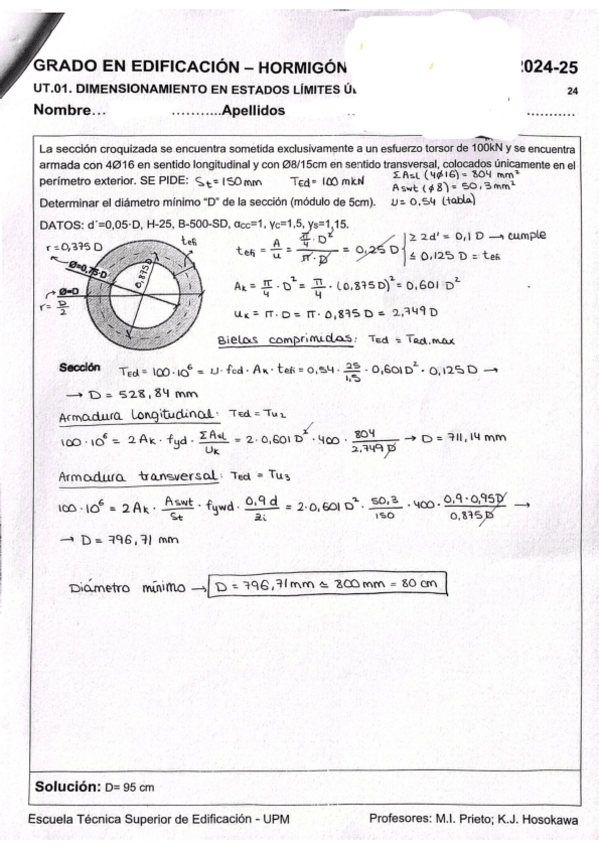 GRADO EN EDIFICACIÓN – HORMIGÓN 2024-25
UT.01. DIMENSIONAMIENTO EN ESTADOS LÍMITES 24
Nombre… ………..Apellidos .. …………
La sección croquizada se encuentra sometida exclusivamente a un esfuerzo torsor de 100kN y se encuentra
armada con 4Ø16 en sentido longitudinal y con Ø8/15cm en sentido transversal, colocados únicamente en el
perímetro exterior. SE PIDE: St = 150 mm TEd = 100 mkN ΣAsl (4Ø16) = 804 mm²
Aswt (Ø8) = 50,3 mm²
Determinar el diámetro mínimo "D" de la sección (módulo de 5cm). U = 0,54 (tabla)
DATOS: d´=0,05·D, H-25, B-500-SD, αcc=1, γc=1,5, γs=1,15.
r = 0,375 D
tefi
Ø=0,75·D
0,875 D
Ø=D
r = D/2
tefi = A/u = (π/4 · D²)/(π · D) = 0,25 D
≥ 2d' = 0,1 D → cumple
≤ 0,125 D = tefi
Ak = π/4 · D² = π/4 · (0,875 D)² = 0,601 D²
uk = π · D = π · 0,875 D = 2,749 D
Bielas comprimidas: TEd = TRd,max
Sección TEd = 100·10⁶ = U · fcd · Ak · tefi = 0,54 · 25/1,5 · 0,601 D² · 0,125 D →
→ D = 528,84 mm
Armadura Longitudinal: TEd = Tu2
100·10⁶ = 2 Ak · fyd · ΣAsl/Uk = 2 · 0,601 D² · 400 · 804/2,749 D → D = 711,14 mm
Armadura transversal: TEd = Tu3
100·10⁶ = 2 Ak · Aswt/St · fywd · 0,9 d/2i = 2 · 0,601 D² · 50,3/150 · 400 · 0,9 · 0,95D/0,875 D →
→ D = 796,71 mm
Diámetro mínimo → D = 796,71 mm ≃ 800 mm = 80 cm
Solución: D= 95 cm
Escuela Técnica Superior de Edificación - UPM Profesores: M.I. Prieto; K.J. Hosokawa